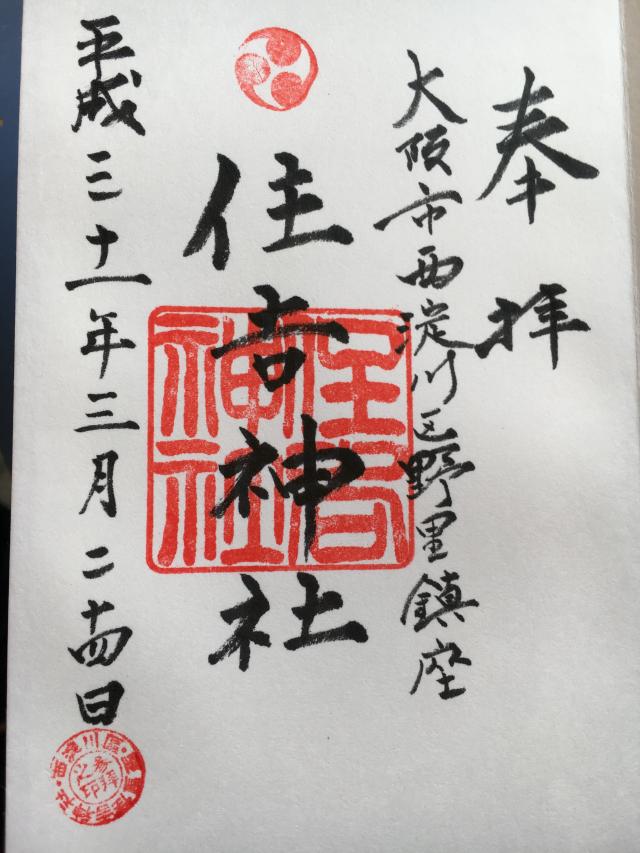 奉拝
大阪市西淀川区野里鎮座
住吉神社
住吉神社
平成三十一年三月二十四日